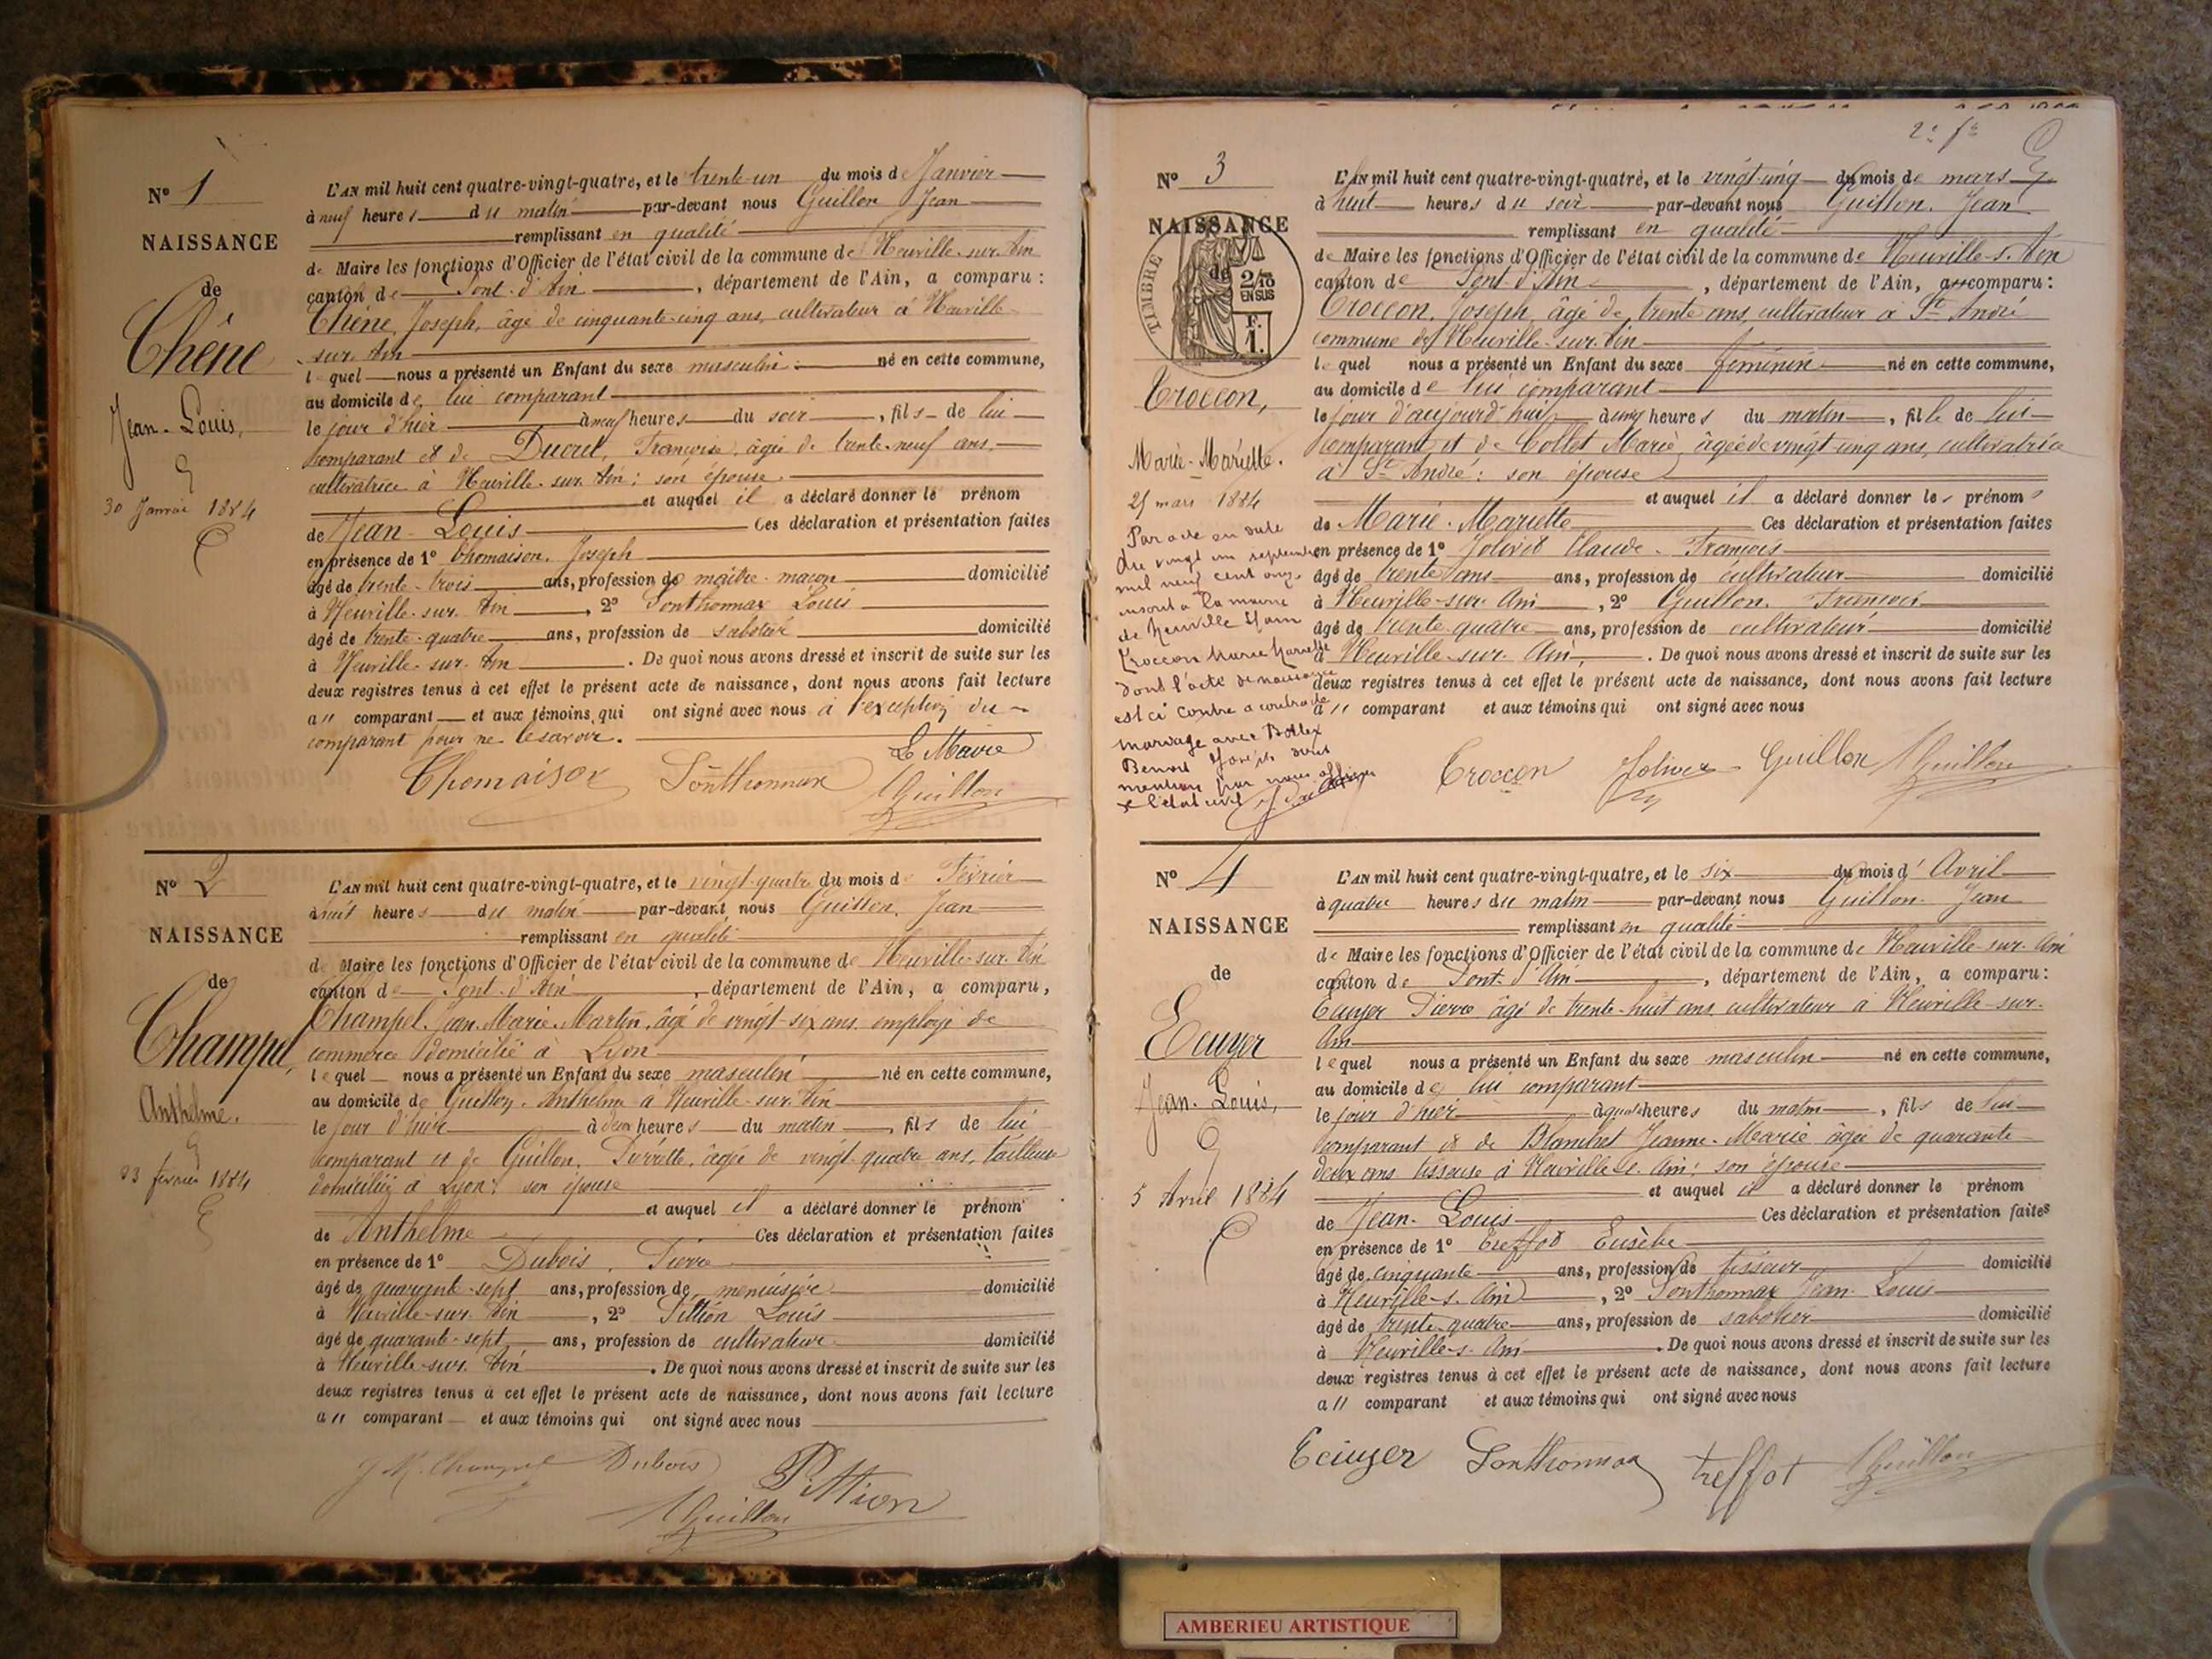 N° 1
NAISSANCE
de
Chêne
Jean-Louis,
30 Janvier 1884
L'AN mil huit cent quatre-vingt-quatre, et le trente-un du mois de Janvier
à neuf heures du matin par-devant nous Guillon Jean
remplissant en qualité
de Maire les fonctions d'Officier de l'état civil de la commune de Neuville-sur-Ain
canton de Pont-d'Ain, département de l'Ain, a comparu :
Chêne, Joseph, âgé de cinquante-cinq ans, cultivateur à Neuville-
sur-Ain
lequel nous a présenté un Enfant du sexe masculin né en cette commune,
au domicile de lui comparant
le jour d'hier à neuf heures du soir, fils de lui
comparant et de Ducret, Françoise, âgée de trente-neuf ans,
cultivatrice à Neuville-sur-Ain ; son épouse.
et auquel il a déclaré donner le prénom
de Jean-Louis Ces déclaration et présentation faites
en présence de 1° Thomaison, Joseph
âgé de trente-trois ans, profession de maître-maçon domicilié
à Neuville-sur-Ain, 2° Ponthonnax Louis
âgé de trente-quatre ans, profession de sabotier domicilié
à Neuville-sur-Ain. De quoi nous avons dressé et inscrit de suite sur les
deux registres tenus à cet effet le présent acte de naissance, dont nous avons fait lecture
au comparant et aux témoins qui ont signé avec nous à l'exception du
comparant pour ne le savoir.
Le Maire
Thomaison Ponthonnax Guillon
N° 2
NAISSANCE
de
Champel,
Anthelme.
23 février 1884
L'AN mil huit cent quatre-vingt-quatre, et le vingt-quatre du mois de Février
à huit heures du matin par-devant nous Guillon, Jean
remplissant en qualité
de Maire les fonctions d'Officier de l'état civil de la commune de Neuville-sur-Ain
canton de Pont-d'Ain, département de l'Ain, a comparu,
Champel, Jean-Marie-Martin, âgé de vingt-six ans, employé de
commerce domicilié à Lyon
lequel nous a présenté un Enfant du sexe masculin né en cette commune,
au domicile de Guillon, Anthelme à Neuville-sur-Ain
le jour d'hier à deux heures du matin, fils de lui
comparant et de Guillon, Pierrette, âgée de vingt-quatre ans, tailleuse
domiciliée à Lyon ; son épouse
et auquel il a déclaré donner le prénom
de Anthelme Ces déclaration et présentation faites
en présence de 1° Dubois, Pierre
âgé de quarante-sept ans, profession de menuisier domicilié
à Neuville-sur-Ain, 2° Pittion Louis
âgé de quarante-sept ans, profession de cultivateur domicilié
à Neuville-sur-Ain. De quoi nous avons dressé et inscrit de suite sur les
deux registres tenus à cet effet le présent acte de naissance, dont nous avons fait lecture
au comparant et aux témoins qui ont signé avec nous
J M Champel Dubois Pittion
Guillon
2e fe
N° 3
NAISSANCE
de
TIMBRE
2/10
EN SUS
F.
1.
Croccon,
Marie-Mariette.
25 mars 1884
Par acte en date
du vingt un septembre
mil neuf cent onze
inscrit à la mairie
de Neuville s/ Ain
Croccon Marie Mariette
dont l'acte de naissance
est ci contre a contracté
mariage avec Bollex
Benoit dont
mention par nous officier
de l'état civil
L'AN mil huit cent quatre-vingt-quatre, et le vingt-cinq du mois de mars
à huit heures du soir par-devant nous Guillon, Jean
remplissant en qualité
de Maire les fonctions d'Officier de l'état civil de la commune de Neuville-s-Ain
canton de Pont-d'Ain, département de l'Ain, a comparu :
Croccon, Joseph, âgé de trente ans, cultivateur à St André
commune de Neuville-sur-Ain
lequel nous a présenté un Enfant du sexe féminin né en cette commune,
au domicile de lui comparant
le jour d'aujourd'hui à cinq heures du matin, fille de lui
comparant et de Collet Marie, âgée de vingt-cinq ans, cultivatrice
à St André ; son épouse
et auquel il a déclaré donner les prénoms
de Marie-Mariette Ces déclaration et présentation faites
en présence de 1° Jolivet Claude-François
âgé de trente ans ans, profession de cultivateur domicilié
à Neuville-sur-Ain, 2° Guillon, François
âgé de trente-quatre ans, profession de cultivateur domicilié
à Neuville-sur-Ain. De quoi nous avons dressé et inscrit de suite sur les
deux registres tenus à cet effet le présent acte de naissance, dont nous avons fait lecture
au comparant et aux témoins qui ont signé avec nous
Croccon Jolivet Guillon Guillon
N° 4
NAISSANCE
de
Ecuyer
Jean-Louis,
5 Avril 1884
L'AN mil huit cent quatre-vingt-quatre, et le six du mois d'Avril
à quatre heures du matin par-devant nous Guillon Jean
remplissant en qualité
de Maire les fonctions d'Officier de l'état civil de la commune de Neuville-sur-Ain
canton de Pont-d'Ain, département de l'Ain, a comparu :
Ecuyer Pierre âgé de trente-huit ans cultivateur à Neuville-sur-
Ain
lequel nous a présenté un Enfant du sexe masculin né en cette commune,
au domicile de lui comparant
le jour d'hier à quatre heures du matin, fils de lui
comparant et de Blanchet Jeanne-Marie âgée de quarante-
deux ans tisseuse à Neuville-s-Ain ; son épouse
et auquel il a déclaré donner le prénom
de Jean-Louis Ces déclaration et présentation faites
en présence de 1° Treffot Eusèbe
âgé de cinquante ans, profession de tisseur domicilié
à Neuville-s-Ain, 2° Ponthonnax Jean-Louis
âgé de trente-quatre ans, profession de sabotier domicilié
à Neuville-s-Ain. De quoi nous avons dressé et inscrit de suite sur les
deux registres tenus à cet effet le présent acte de naissance, dont nous avons fait lecture
au comparant et aux témoins qui ont signé avec nous
Ecuyer Ponthonnax treffot Guillon
AMBERIEU ARTISTIQUE